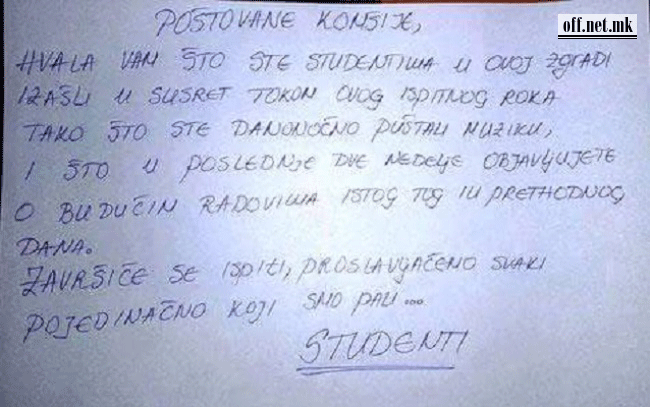 off.net.mk
POŠTOVANE KOMŠIJE,
HVALA VAM ŠTO STE STUDENTIMA U OVOJ ZGRADI
IZAŠLI U SUSRET TOKOM OVOG ISPITNOG ROKA
TAKO ŠTO STE DANONOĆNO PUŠTALI MUZIKU,
I ŠTO U POSLEDNJE DVE NEDELJE OBJAVLJUJETE
O BUDUĆIM RADOVIMA ISTOG TOG ILI PRETHODNOG
DANA.
ZAVRŠIĆE SE ISPITI, PROSLAVJAĆEMO SVAKI
POJEDINAČNO KOJI SMO PALI...
STUDENTI